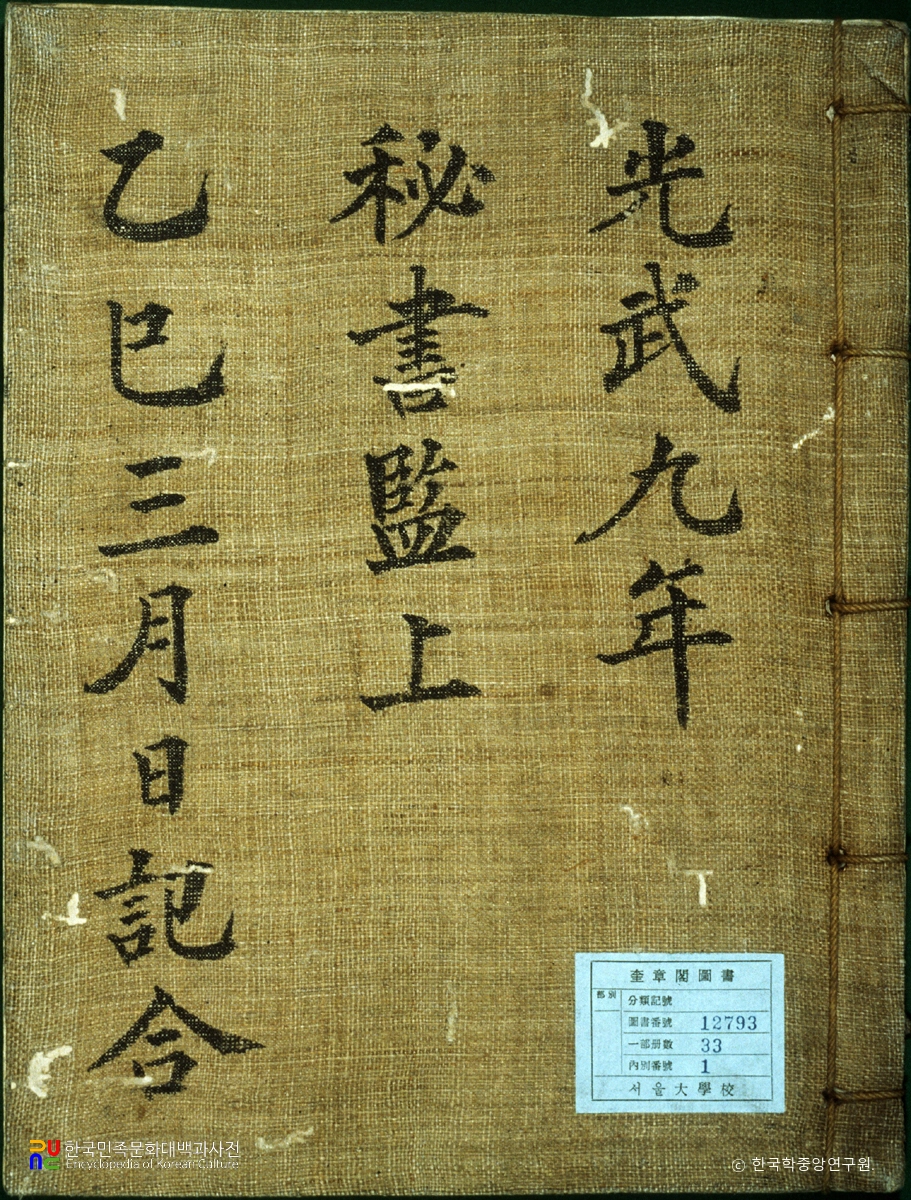 光武九年
秘書監上
乙巳三月日記合
奎章閣圖書
部別
分類記號
圖書番號 12793
一部册數 33
內別番號 1
서울大學校
한국민족문화대백과사전
Encyclopedia of Korean Culture
© 한국학중앙연구원